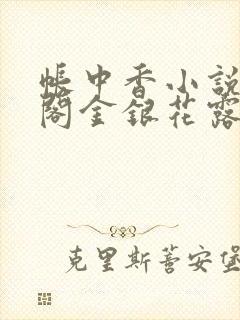 帳中香小說
閣金銀花露
克里斯蒼安堡